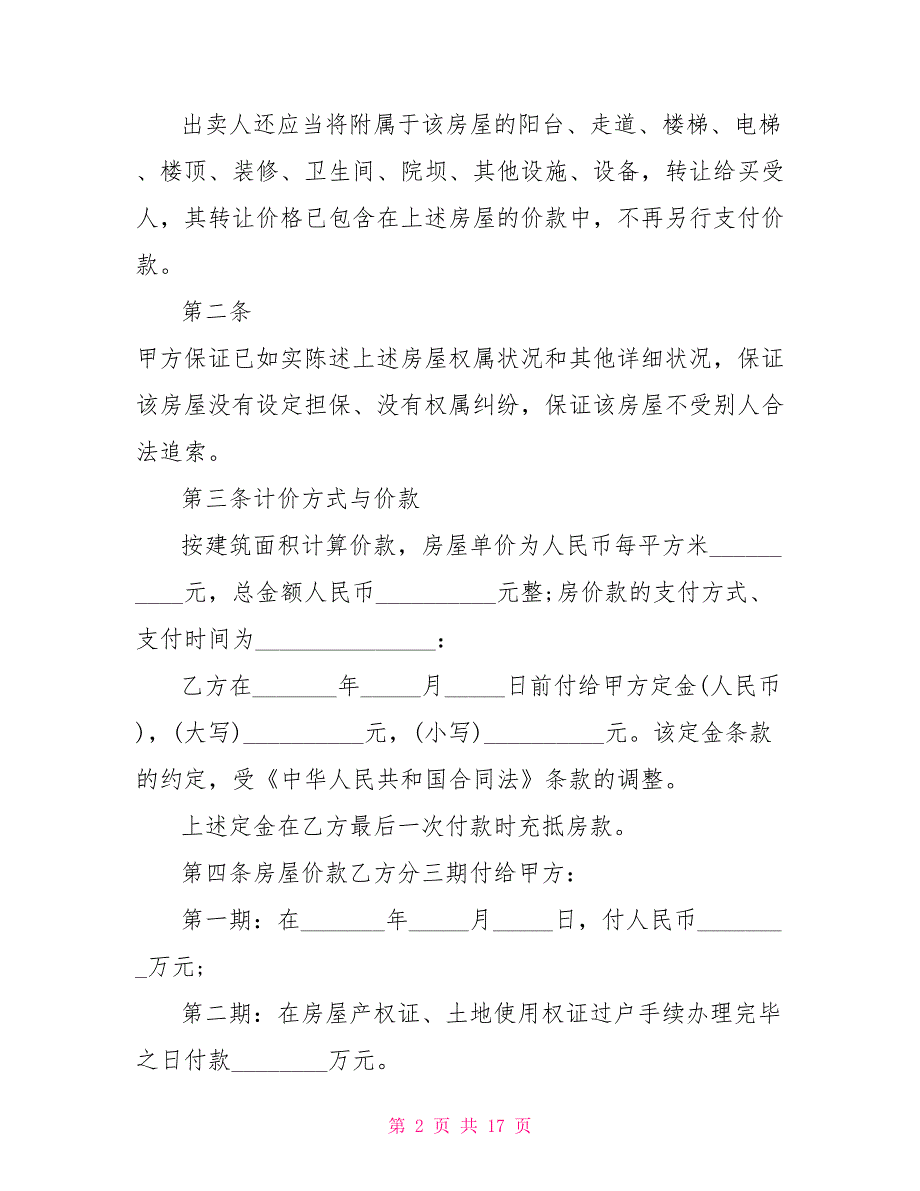 出卖人还应当将附属于该房屋的阳台、走道、楼梯、电梯
、楼顶、装修、卫生间、院坝、其他设施、设备，转让给买受
人，其转让价格已包含在上述房屋的价款中，不再另行支付价
款。
第二条
甲方保证已如实陈述上述房屋权属状况和其他详细状况，保证
该房屋没有设定担保、没有权属纠纷，保证该房屋不受别人合
法追索。
第三条计价方式与价款
按建筑面积计算价款，房屋单价为人民币每平方米______
____元，总金额人民币__________元整;房价款的支付方式、
支付时间为_______________：
乙方在_______年_____月_____日前付给甲方定金(人民币
)，(大写)__________元，(小写)__________元。该定金条款
的约定，受《中华人民共和国合同法》条款的调整。
上述定金在乙方最后一次付款时充抵房款。
第四条房屋价款乙方分三期付给甲方：
第一期：在_______年_____月_____日，付人民币_______
_万元;
第二期：在房屋产权证、土地使用权证过户手续办理完毕
之日付款________万元。
第 2 页 共 17 页